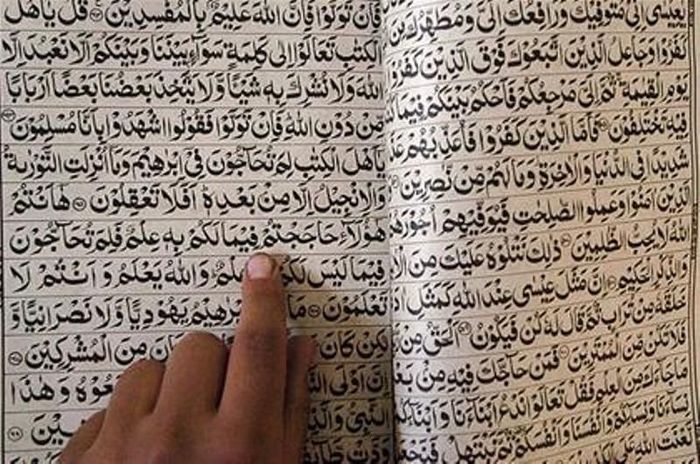 يٰعِيْسٰٓى اِنِّىْ مُتَوَفِّيْكَ وَرَافِعُكَ اِلَىَّ وَمُطَهِّرُكَ مِنَ
كَفَرُوْا وَجَاعِلُ الَّذِيْنَ اتَّبَعُوْكَ فَوْقَ الَّذِيْنَ كَفَرُوْٓا
يَوْمِ الْقِيٰمَةِ ۚ ثُمَّ اِلَىَّ مَرْجِعُكُمْ فَاَحْكُمُ بَيْنَكُمْ فِيْمَا
فِيْهِ تَخْتَلِفُوْنَ فَاَمَّا الَّذِيْنَ كَفَرُوْا فَاُعَذِّبُهُمْ
شَدِيْدًا فِى الدُّنْيَا وَالْاٰخِرَةِ وَمَا لَهُمْ مِّنْ نّٰصِرِيْنَ
الَّذِيْنَ اٰمَنُوْا وَعَمِلُوا الصّٰلِحٰتِ فَيُوَفِّيْهِمْ اُجُوْرَهُمْ
اللّٰهُ لَا يُحِبُّ الظّٰلِمِيْنَ ذٰلِكَ نَتْلُوْهُ عَلَيْكَ مِنَ
وَالذِّكْرِ الْحَكِيْمِ اِنَّ مَثَلَ عِيْسٰى عِنْدَ اللّٰهِ كَمَثَلِ
خَلَقَهٗ مِنْ تُرَابٍ ثُمَّ قَالَ لَهٗ كُنْ فَيَكُوْنُ اَلْحَقُّ مِنْ
فَلَا تَكُنْ مِّنَ الْمُمْتَرِيْنَ فَمَنْ حَآجَّكَ فِيْهِ مِنْۢ بَعْدِ
مَا جَآءَكَ مِنَ الْعِلْمِ فَقُلْ تَعَالَوْا نَدْعُ اَبْنَآءَنَا وَاَبْنَآءَكُمْ
وَنِسَآءَنَا وَنِسَآءَكُمْ وَاَنْفُسَنَا وَاَنْفُسَكُمْ ثُمَّ نَبْتَهِلْ فَنَجْعَلْ
لَّعْنَتَ اللّٰهِ
فَاِنْ تَوَلَّوْا فَاِنَّ اللّٰهَ عَلِيْمٌۢ بِالْمُفْسِدِيْنَ قُلْ يٰٓاَهْلَ
الْكِتٰبِ تَعَالَوْا اِلٰى كَلِمَةٍ سَوَآءٍۢ بَيْنَنَا وَبَيْنَكُمْ اَلَّا نَعْبُدَ اِلَّا
اللّٰهَ وَلَا نُشْرِكَ بِهٖ شَيْـًٔا وَّلَا يَتَّخِذَ بَعْضُنَا بَعْضًا اَرْبَابًا
مِّنْ دُوْنِ اللّٰهِ ؕ فَاِنْ تَوَلَّوْا فَقُوْلُوا اشْهَدُوْا بِاَنَّا مُسْلِمُوْنَ
يٰٓاَهْلَ الْكِتٰبِ لِمَ تُحَآجُّوْنَ فِىْٓ اِبْرٰهِيْمَ وَمَآ اُنْزِلَتِ التَّوْرٰىةُ
وَالْاِنْجِيْلُ اِلَّا مِنْۢ بَعْدِهٖ ؕ اَفَلَا تَعْقِلُوْنَ هٰٓاَنْتُمْ
هٰٓؤُلَآءِ حَاجَجْتُمْ فِيْمَا لَكُمْ بِهٖ عِلْمٌ فَلِمَ تُحَآجُّوْنَ
فِيْمَا لَيْسَ لَكُمْ عِلْمٌ ؕ وَاللّٰهُ يَعْلَمُ وَاَنْتُمْ لَا
تَعْلَمُوْنَ مَا اِبْرٰهِيْمُ يَهُوْدِيًّا وَّلَا نَصْرَانِيًّا وَّ
لٰكِنْ كَانَ كَانَ مِنَ الْمُشْرِكِيْنَ
اِنَّ اَوْلَى النَّ اتَّبَعُوْهُ وَهٰذَا
النَّبِىُّ وَالَّذِيْنَ
وَدَّتْ طَّآئِفَةٌ